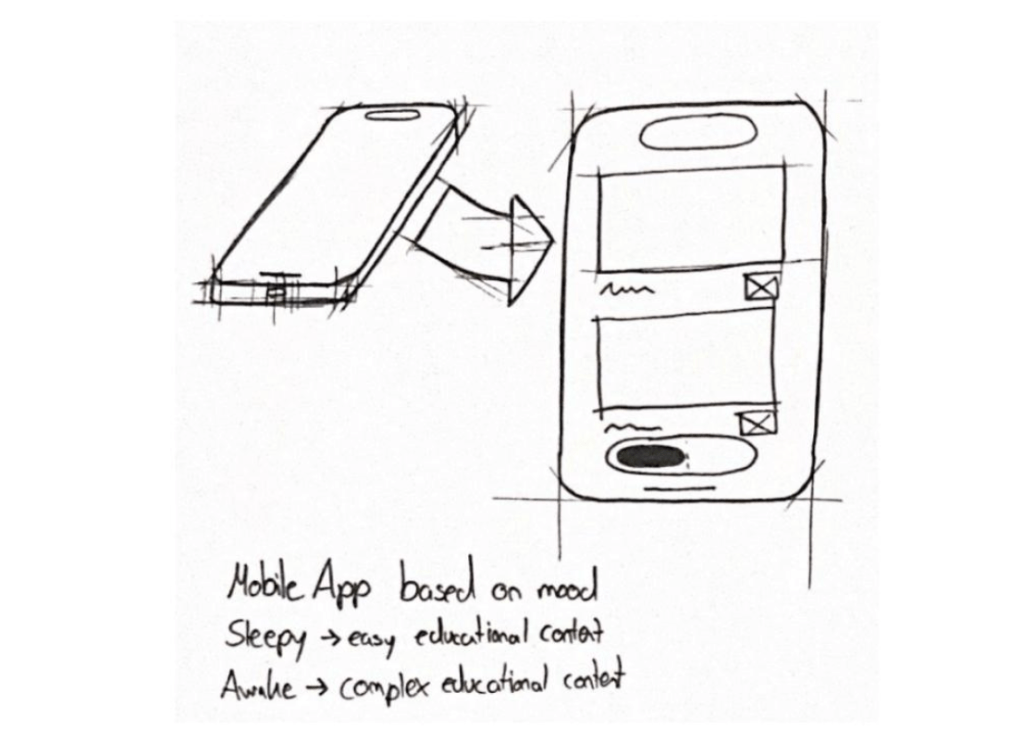 Mobile App based on mood
Sleepy → easy educational content
Awake → complex educational content